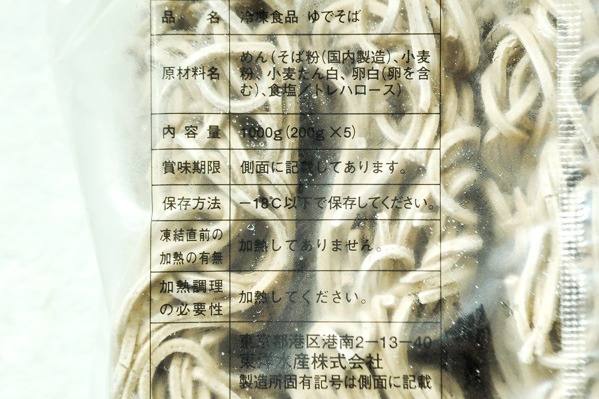 品名 冷凍食品 ゆでそば
原材料名 めん(そば粉(国内製造)、小麦
粉、小麦たん白、卵白(卵を含
む)、食塩/トレハロース)
内容量 1000g(200g×5)
賞味期限 側面に記載してあります。
保存方法 −18℃以下で保存してください。
凍結直前の
加熱の有無 加熱してありません。
加熱調理
の必要性 加熱してください。
東京都港区港南2−13−40
東洋水産株式会社
製造所固有記号は側面に記載